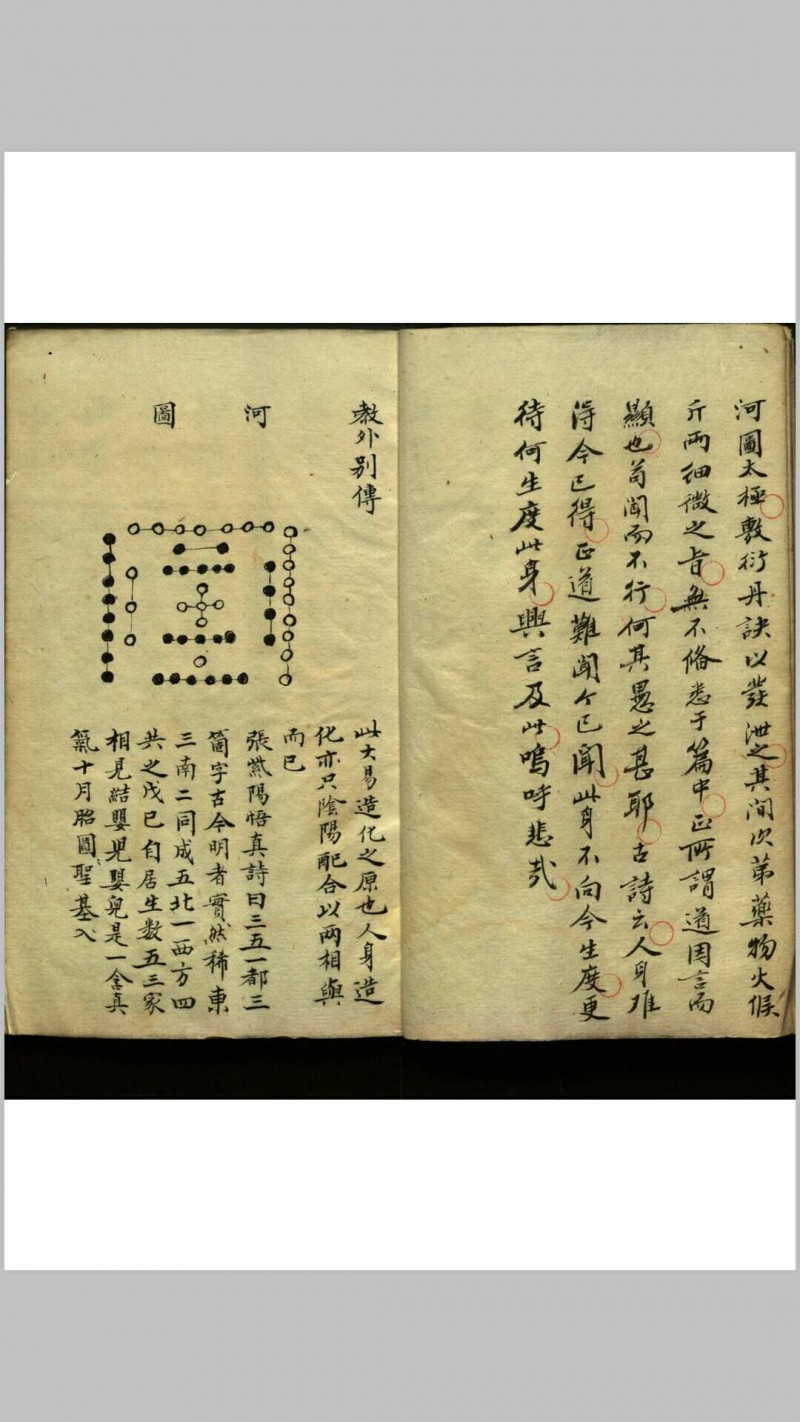 河圖太極敷衍丹訣以發泄之其間次第藥物火候
斤兩細微之旨無不偹悉于篇中正所謂道因言而
顯也苟聞而不行何其愚之甚耶古詩云人身难
得今已得正道難聞今已聞此身不向今生度更
待何生度此身興言及此嗚呼悲哉
教外別傳
河圖
此大易造化之原也人身造
化亦只陰陽配合以两相與
而已
張紫陽悟真詩曰三五一都三
箇字古今明者實然稀東
三南二同成五北一西方四
共之戊已自居生数五三家
相見結嬰児嬰兒是一含真
氣十月胎圓聖基入